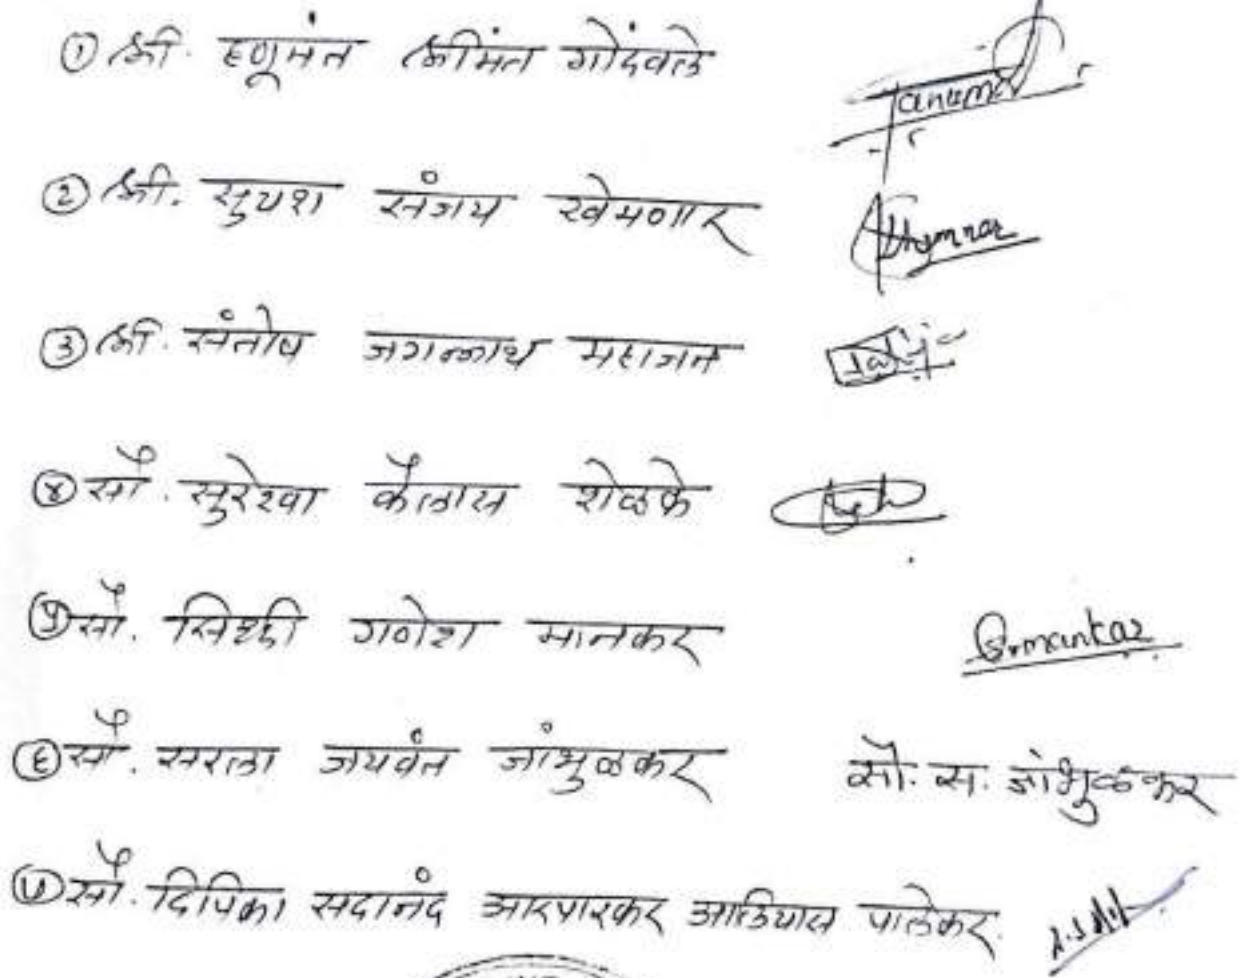 ① श्री. हणूमंत श्रीमंत गोंदवले
② श्री. सुयश संजय खेमणार
③ श्री. संतोष जगन्नाथ महाजन
④ सौ. सुरेखा कैलास शेळके
⑤ सौ. सिध्दी गणेश मानकर Grmankar
⑥ सौ. सरला जयवंत जांभुळकर सौ. स. जांभुळकर
⑦ सौ. दिपिका सदानंद आरपारकर आलियास पालेकर.